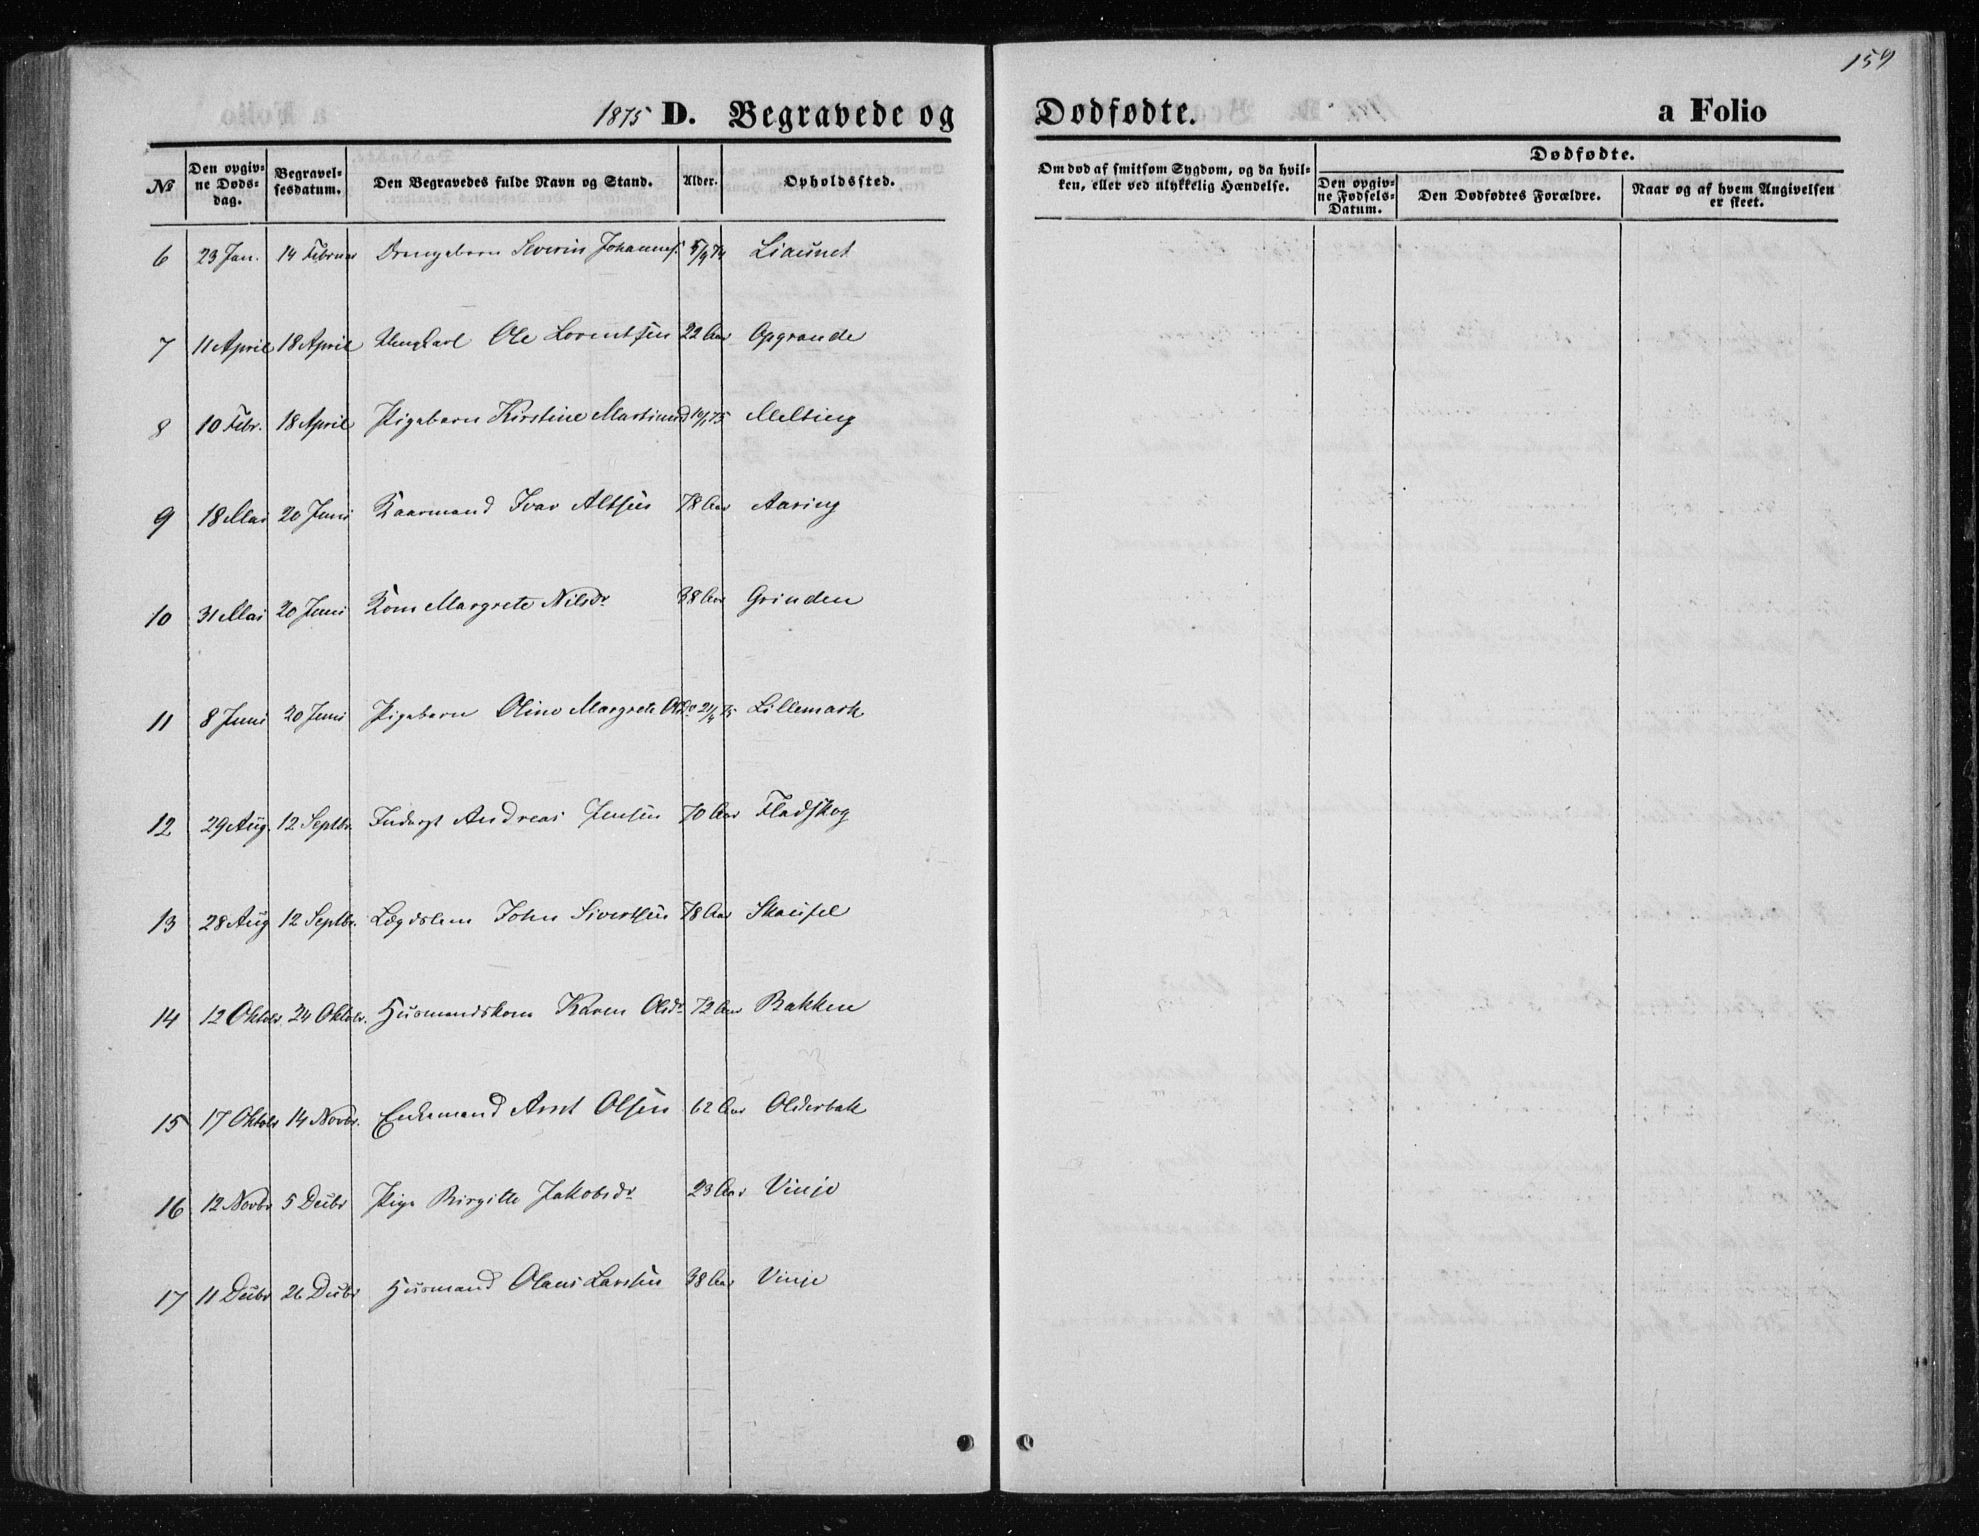 159
1875 D. Begravede og Dødfødte. a Folio
№ Den opgivne Døds-dag. Begravelsesdatum. Den Begravedes fulde Navn og Stand. Alder. Opholdssted. Om død af smitsom Sygdom, og da hvilken, eller ved ulykkelig Hændelse. Dødfødte. Den opgivne Fødsels-Datum. Den Dødfødtes Forældre. Naar og af hvem Angivelsen er skeet.
6 23 Jan. 14 Februar Drengebarn Severin Johannes. 5/9 74 Liaunet
7 11 April 18 April Ungkarl Ole Lorentsen 22 Aar Opgrande
8 10 Febr. 18 April Pigebarn Kirstine 10/1 75 Melting
9 18 Mai 20 Juni Kaarmand Ivar Altsen 78 Aar Aaring
10 31 Mai 20 Juni Kone Margrete Nilsdr 38 Aar Grinden
11 8 Juni 20 Juni Pigebarn Oline Margrete 21/4 75 Lillemark
12 29 Aug. 12 Septbr. Inderst Andreas Jensen 70 Aar Fladskog
13 28 Aug 12 Septbr. Lægdslem John Sivertsen 78 Aar Skaufel
14 12 Oktobr. 24 Oktobr. Husmandskone Karen Olsdr 72 Aar Bakken
15 17 Oktobr 14 Novbr. Enkemand Arnt Olsen 62 Aar Olderbak
16 12 Novbr 5 Decbr Pige Birgitte Jakobsdr 23 Aar Vinje
17 11 Decbr 26 Decbr Husmand Olaus Larsen 38 Aar Vinje